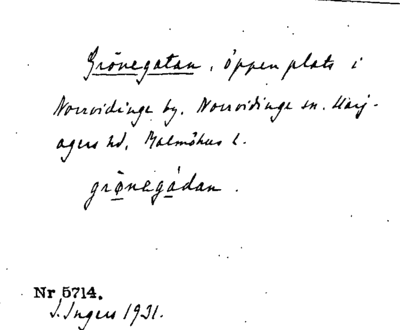 Grönegatan, öppen plats i
Norrvidinge by, Norrvidinge sn. Harj-
agers hd, Malmöhus l.
grönegádan.
Nr 5714.
I. Ingers 1931.